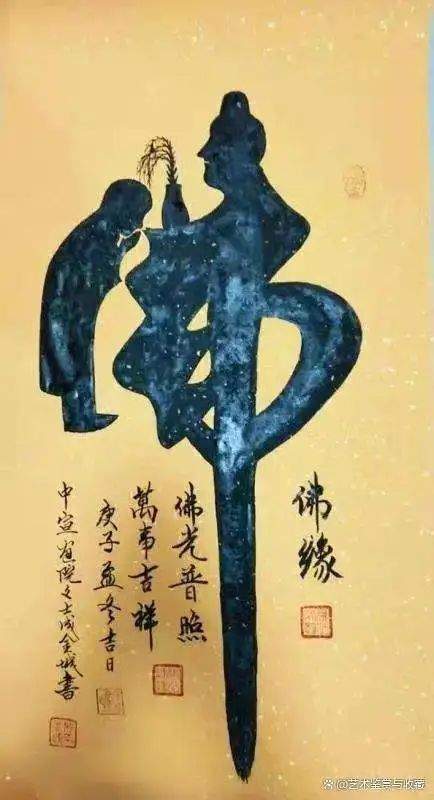 佛
佛缘
佛光普照
萬事吉祥
庚子孟冬吉日
中宣书院文士成金城書
@艺术鉴赏与收藏